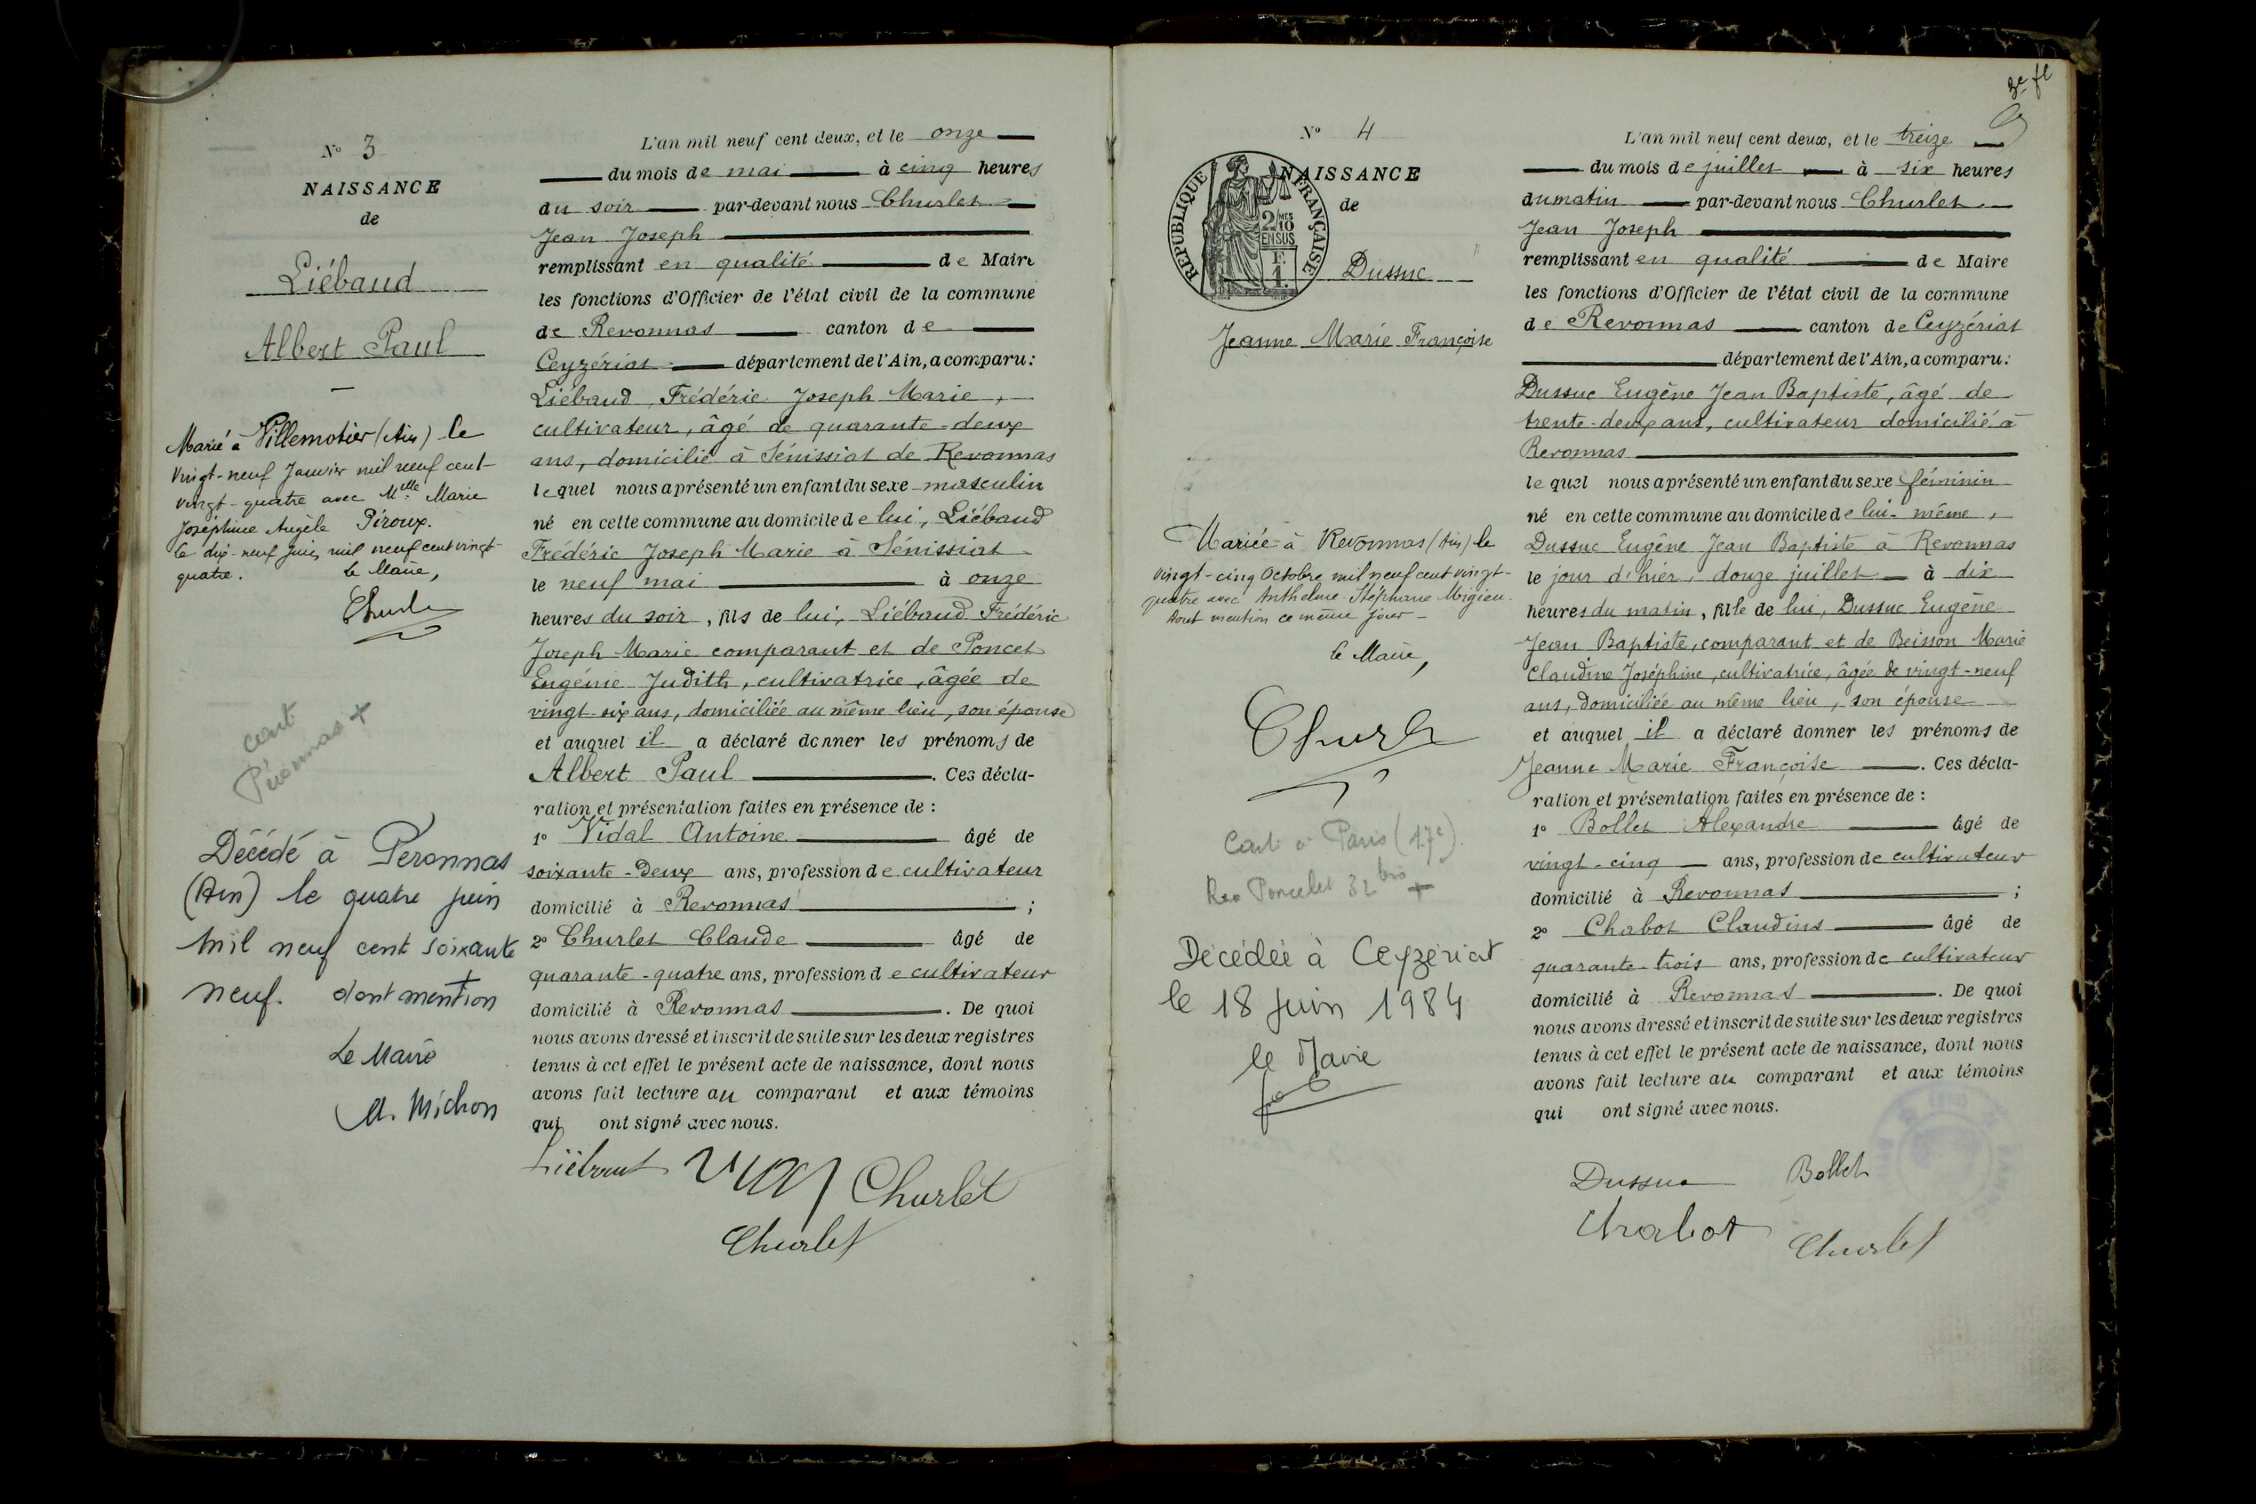 N° 3
NAISSANCE
de
Liébaud
Albert Paul
Marié à Villemotier (Ain) le
vingt-neuf Janvier mil neuf cent
vingt-quatre avec Mlle Marie
Joséphine Angèle Piroux.
le dix-neuf juin mil neuf cent vingt
quatre. Le Maire,
Churlet
cart
Péronnas +
Décédé à Peronnas
(Ain) le quatre juin
mil neuf cent soixante
neuf. dont mention
Le Maire
M. Michon
L'an mil neuf cent deux, et le onze
du mois de mai à cinq heures
du soir par-devant nous Churlet
Jean Joseph
remplissant en qualité de Maire
les fonctions d'Officier de l'état civil de la commune
de Revonnas canton de
Ceyzériat département de l'Ain, a comparu:
Liébaud, Frédéric Joseph Marie,
cultivateur, âgé de quarante-deux
ans, domicilié à Sénissiat de Revonnas
lequel nous a présenté un enfant du sexe masculin
né en cette commune au domicile de lui, Liébaud
Frédéric Joseph Marie à Sénissiat
le neuf mai à onze
heures du soir, fils de lui, Liébaud Frédéric
Joseph Marie comparant et de Poncet
Eugénie Judith, cultivatrice, âgée de
vingt-six ans, domiciliée au même lieu, son épouse
et auquel il a déclaré donner les prénoms de
Albert Paul. Ces décla-
ration et présentation faites en présence de :
1° Vidal Antoine âgé de
soixante-deux ans, profession de cultivateur
domicilié à Revonnas ;
2° Churlet Claude âgé de
quarante-quatre ans, profession de cultivateur
domicilié à Revonnas. De quoi
nous avons dressé et inscrit de suite sur les deux registres
tenus à cet effet le présent acte de naissance, dont nous
avons fait lecture au comparant et aux témoins
qui ont signé avec nous.
Liébaud Vidal Churlet
Churlet
3e fl
N° 4
NAISSANCE
de
REPUBLIQUE FRANÇAISE
2/10 MES
EN SUS
F.
1.
Dussuc
Jeanne Marie Françoise
Mariée à Revonnas (Ain) le
vingt-cinq Octobre mil neuf cent vingt-
quatre avec Anthelme Stéphane Migieu.
dont mention ce même jour
le Maire,
Churlet
Cart à Paris (17e)
Rue Poncelet 32 bis +
Décédée à Ceyzériat
le 18 Juin 1984
le Maire
L'an mil neuf cent deux, et le treize
du mois de juillet à six heures
du matin par-devant nous Churlet
Jean Joseph
remplissant en qualité de Maire
les fonctions d'Officier de l'état civil de la commune
de Revonnas canton de Ceyzériat
département de l'Ain, a comparu:
Dussuc Eugène Jean Baptiste, âgé de
trente-deux ans, cultivateur domicilié à
Revonnas
lequel nous a présenté un enfant du sexe féminin
né en cette commune au domicile de lui-même,
Dussuc Eugène Jean Baptiste à Revonnas
le jour d'hier, douze juillet à dix
heures du matin, fille de lui, Dussuc Eugène
Jean Baptiste, comparant et de Beisson Marie
Claudine Joséphine, cultivatrice, âgée de vingt-neuf
ans, domiciliée au même lieu, son épouse
et auquel il a déclaré donner les prénoms de
Jeanne Marie Françoise. Ces décla-
ration et présentation faites en présence de :
1° Bollet Alexandre âgé de
vingt-cinq ans, profession de cultivateur
domicilié à Revonnas ;
2° Chabot Claudius âgé de
quarante-trois ans, profession de cultivateur
domicilié à Revonnas. De quoi
nous avons dressé et inscrit de suite sur les deux registres
tenus à cet effet le présent acte de naissance, dont nous
avons fait lecture au comparant et aux témoins
qui ont signé avec nous.
Dussuc Bollet
Chabot Churlet